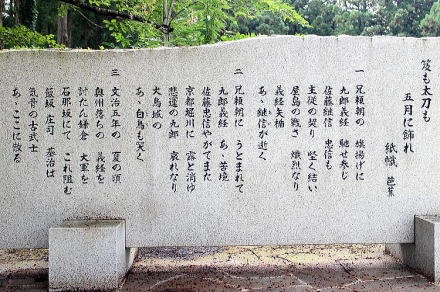 笈も太刀も
五月に飾れ
紙幟 芭蕉
一 兄頼朝の 旗揚げに
九郎義経 馳せ参じ
佐藤継信 忠信も
主従の契り 堅く結い
屋島の戦さ 熾烈なり
義経矢楯
あゝ継信が逝く
二 兄頼朝に うとまれて
九郎義経 あゝ苦境
佐藤忠信やがてまた
京都堀川に 露と消ゆ
悲運の九郎 哀れなり
大鳥城の
あゝ白鳥も哭く
三 文治五年の 夏の頃
奥州落ちの 義経を
討たん鎌倉 大軍を
石那坂にて これ阻む
飯坂 庄司 基治は
気骨の古武士
あゝここに散る